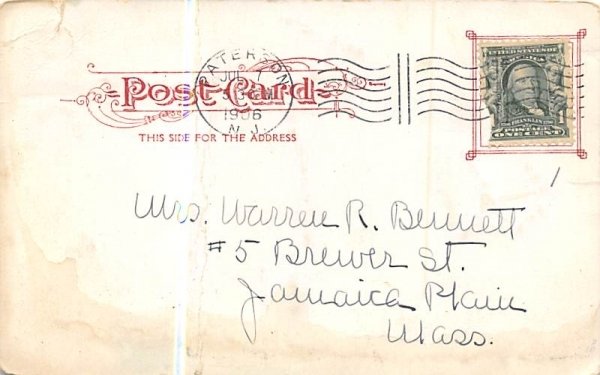 PATERSON
JUL 1
1906
N. J.
Post Card
THIS SIDE FOR THE ADDRESS
UNITED STATES OF
AMERICA
1
FRANKLIN
POSTAGE
ONE CENT
Mrs. Warren R. Bennett
#5 Brewer St.
Jamaica Plain
Mass.